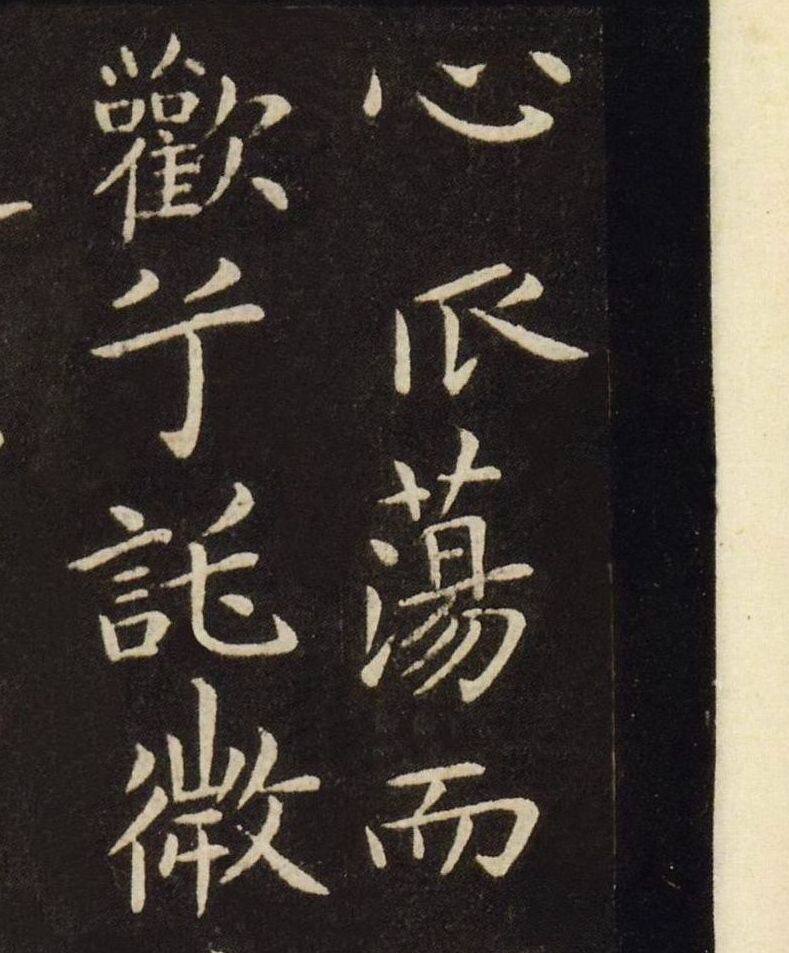 心蕩而
歡兮託微